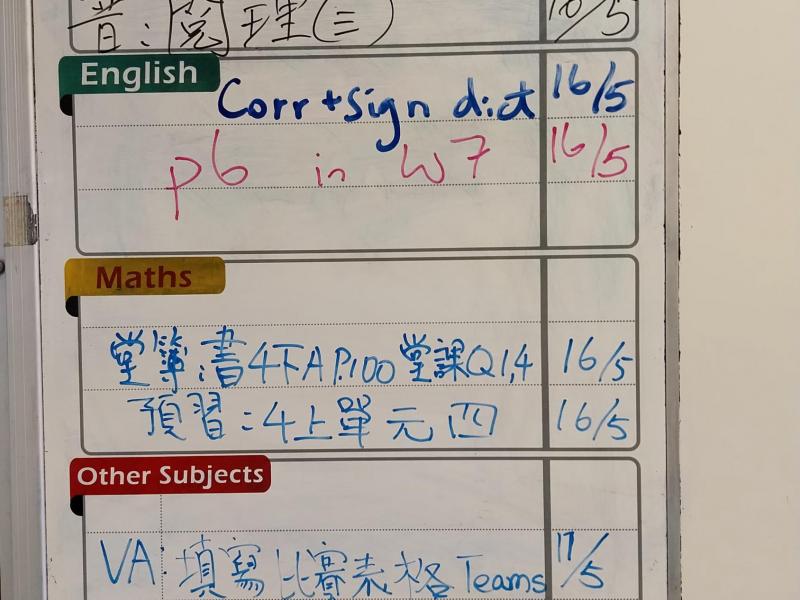 普：閱理(三) 10/5
English
Corr+sign dict 16/5
p6 in W7 16/5
Maths
堂簿：書4下A P.100 堂課Q1,4 16/5
預習：4上單元四 16/5
Other Subjects
VA：填寫比賽表格Teams 17/5